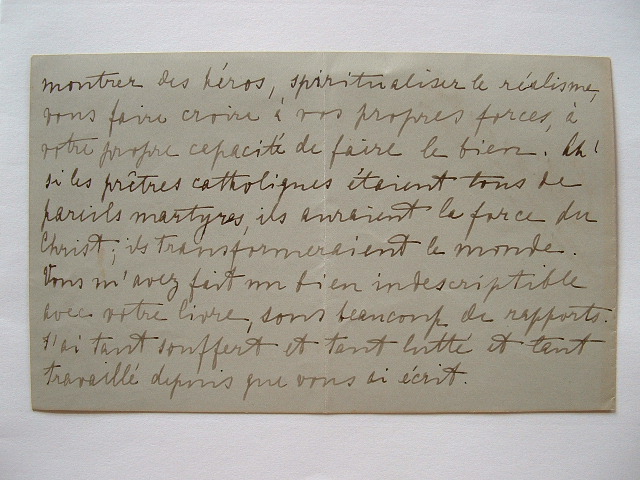 montrer des héros, spiritualiser le réalisme,
vous faire croire à vos propres forces, à
votre propre capacité de faire le bien. Ah!
si les prêtres catholiques étaient tous de
pareils martyres, ils auraient la force du
Christ; ils transformeraient le monde.
Vous m'avez fait un bien indescriptible
avec votre livre, sous beaucoup de rapports.
J'ai tant souffert et tant lutté et tant
travaillé depuis que vous ai écrit.